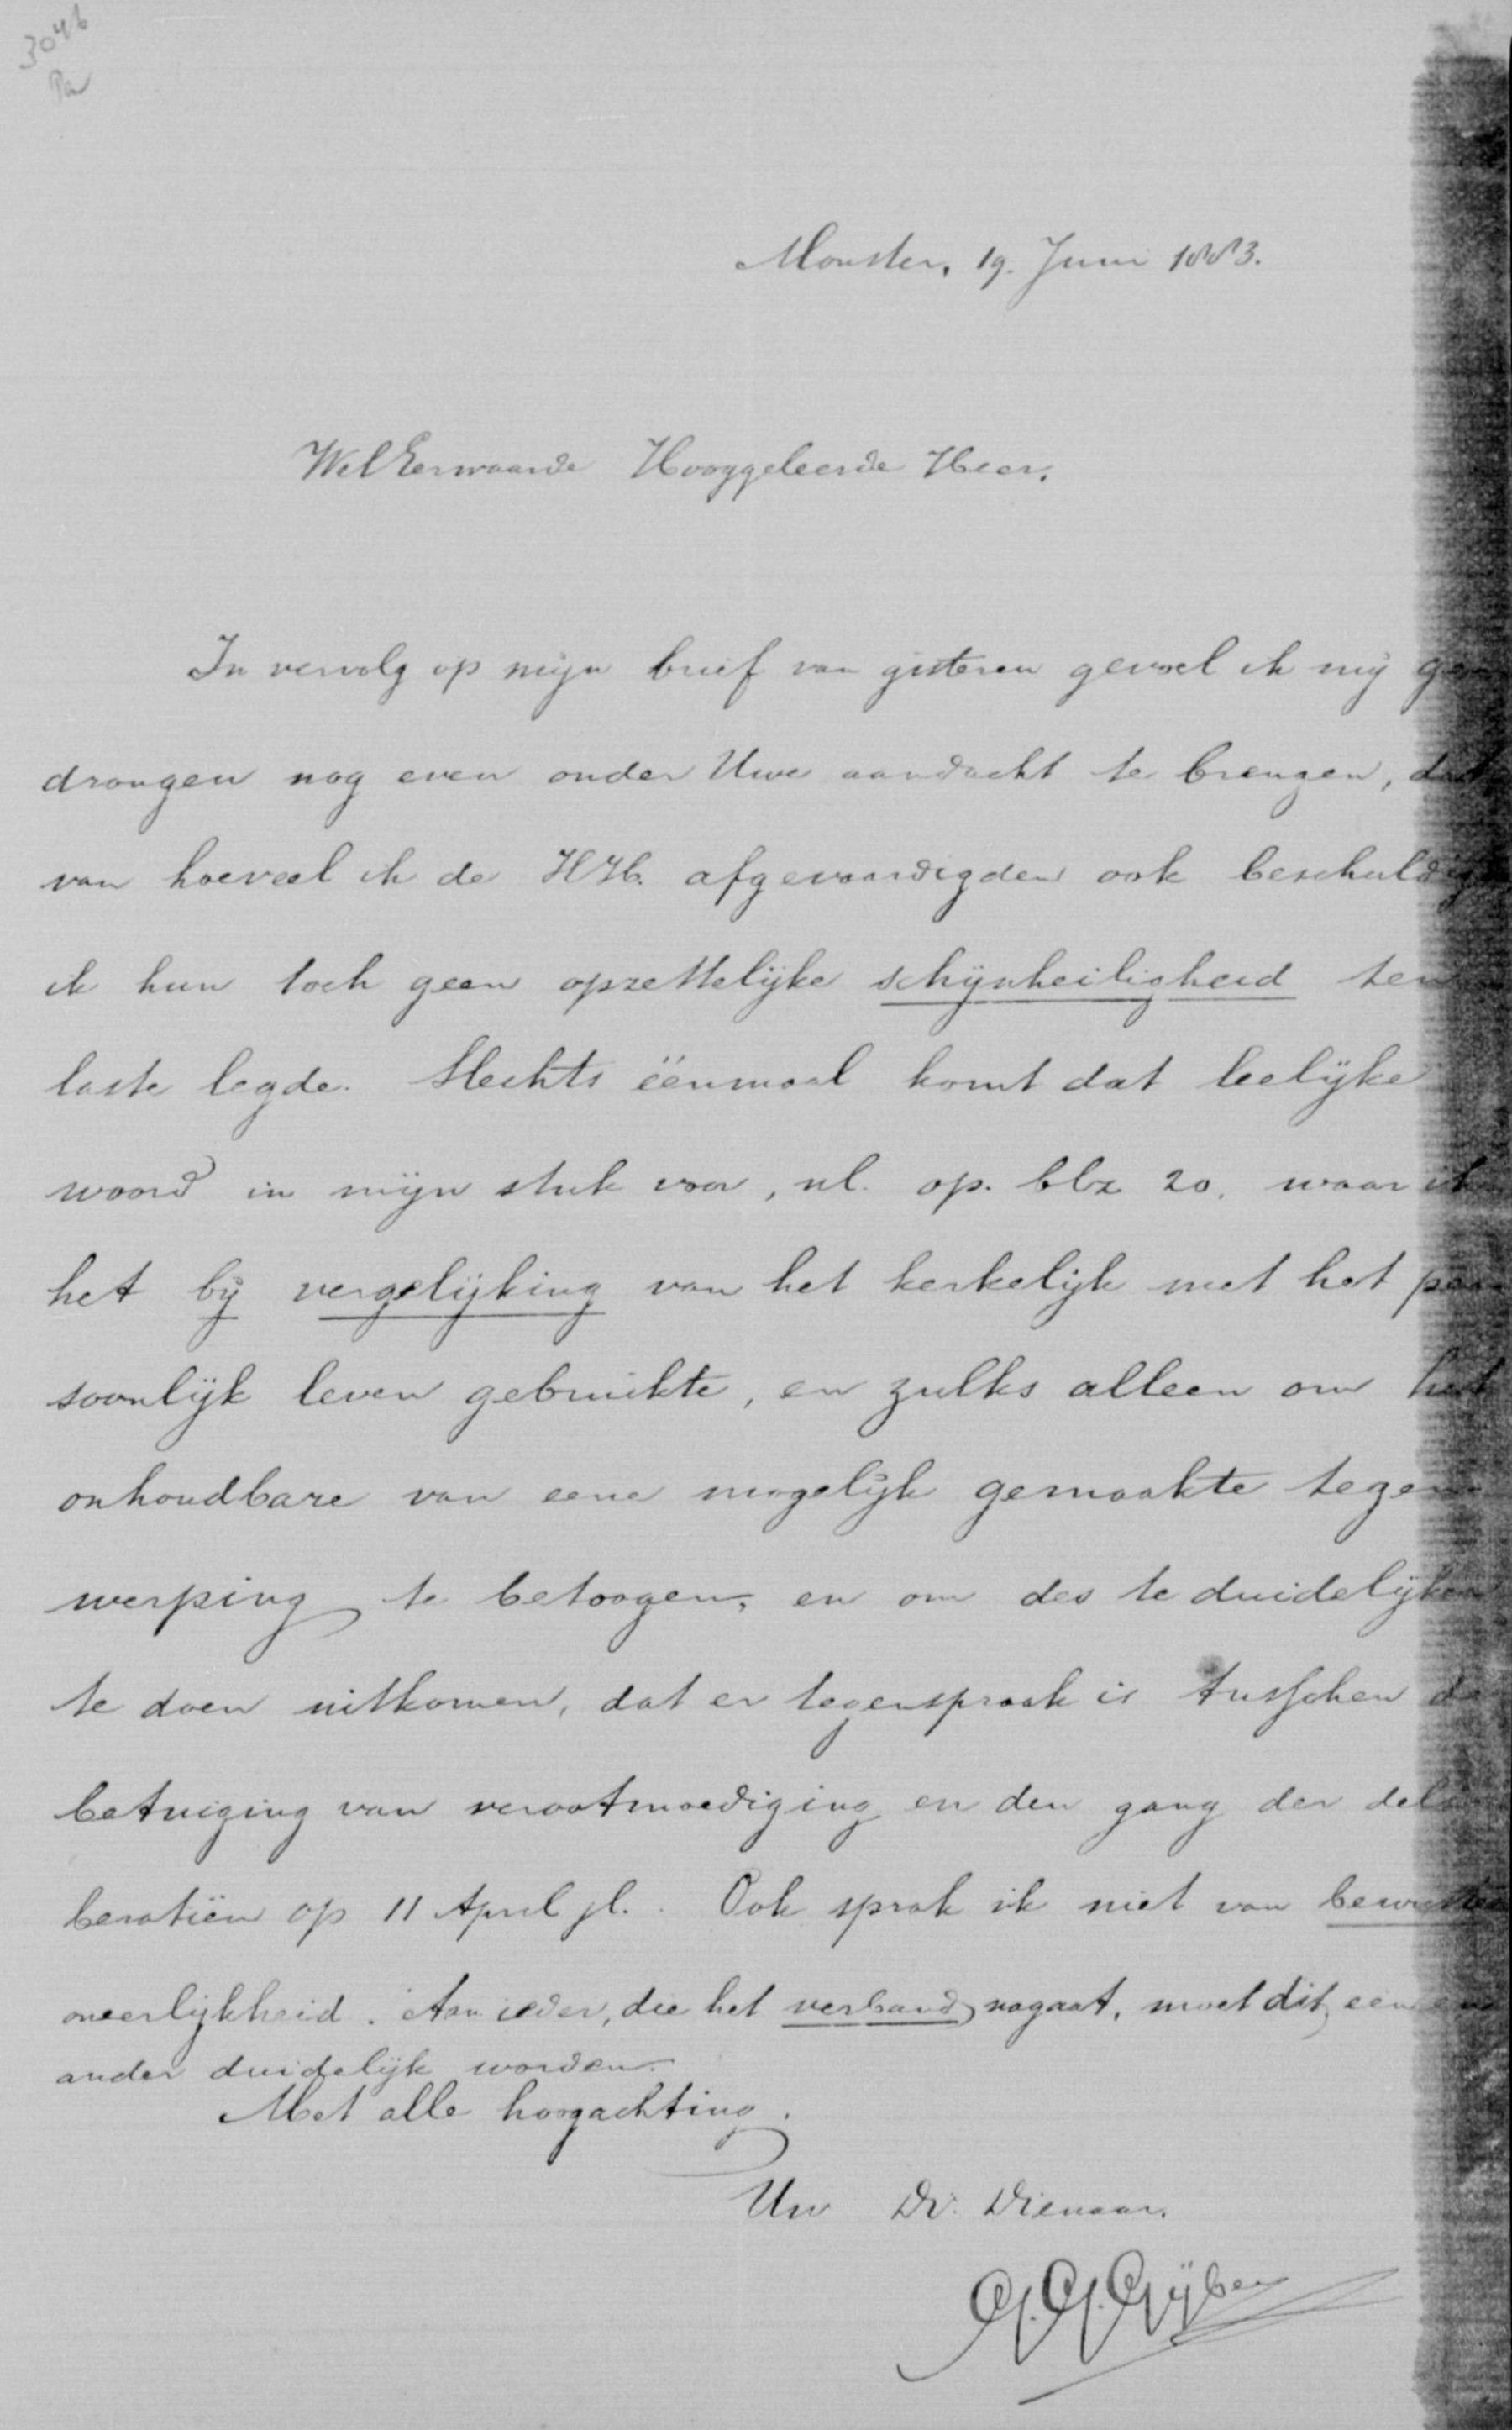 3046
Pa
Monster, 19. Juni 1883.
WelEerwaarde Hooggeleerde Heer,
In vervolg op mijn brief van gisteren gevoel ik mij ge-
drongen nog even onder Uwe aandacht te brengen, dat
van hoeveel ik de HH. afgevaardigden ook beschuldig
ik hun toch geen opzettelijke schijnheiligheid ten
laste legde. Slechts éénmaal komt dat leelijke
woord in mijn stuk voor, nl. op. blz 20. waar ik
het bij vergelijking van het kerkelijk met het per
soonlijk leven gebruikte, en zulks alleen om het
onhoudbare van eene mogelijk gemaakte tegen-
werping te betoogen, en om des te duidelijker
te doen uitkomen, dat er tegenspraak is tusschen de
betuiging van verootmoediging en den gang der deli
beratiën op 11 April jl. Ook sprak ik niet van bewuste
oneerlijkheid. Aan ieder, die het verband nagaat, moet dit een en
ander duidelijk worden.
Met alle hoogachting.
Uw Dv. Dienaar.